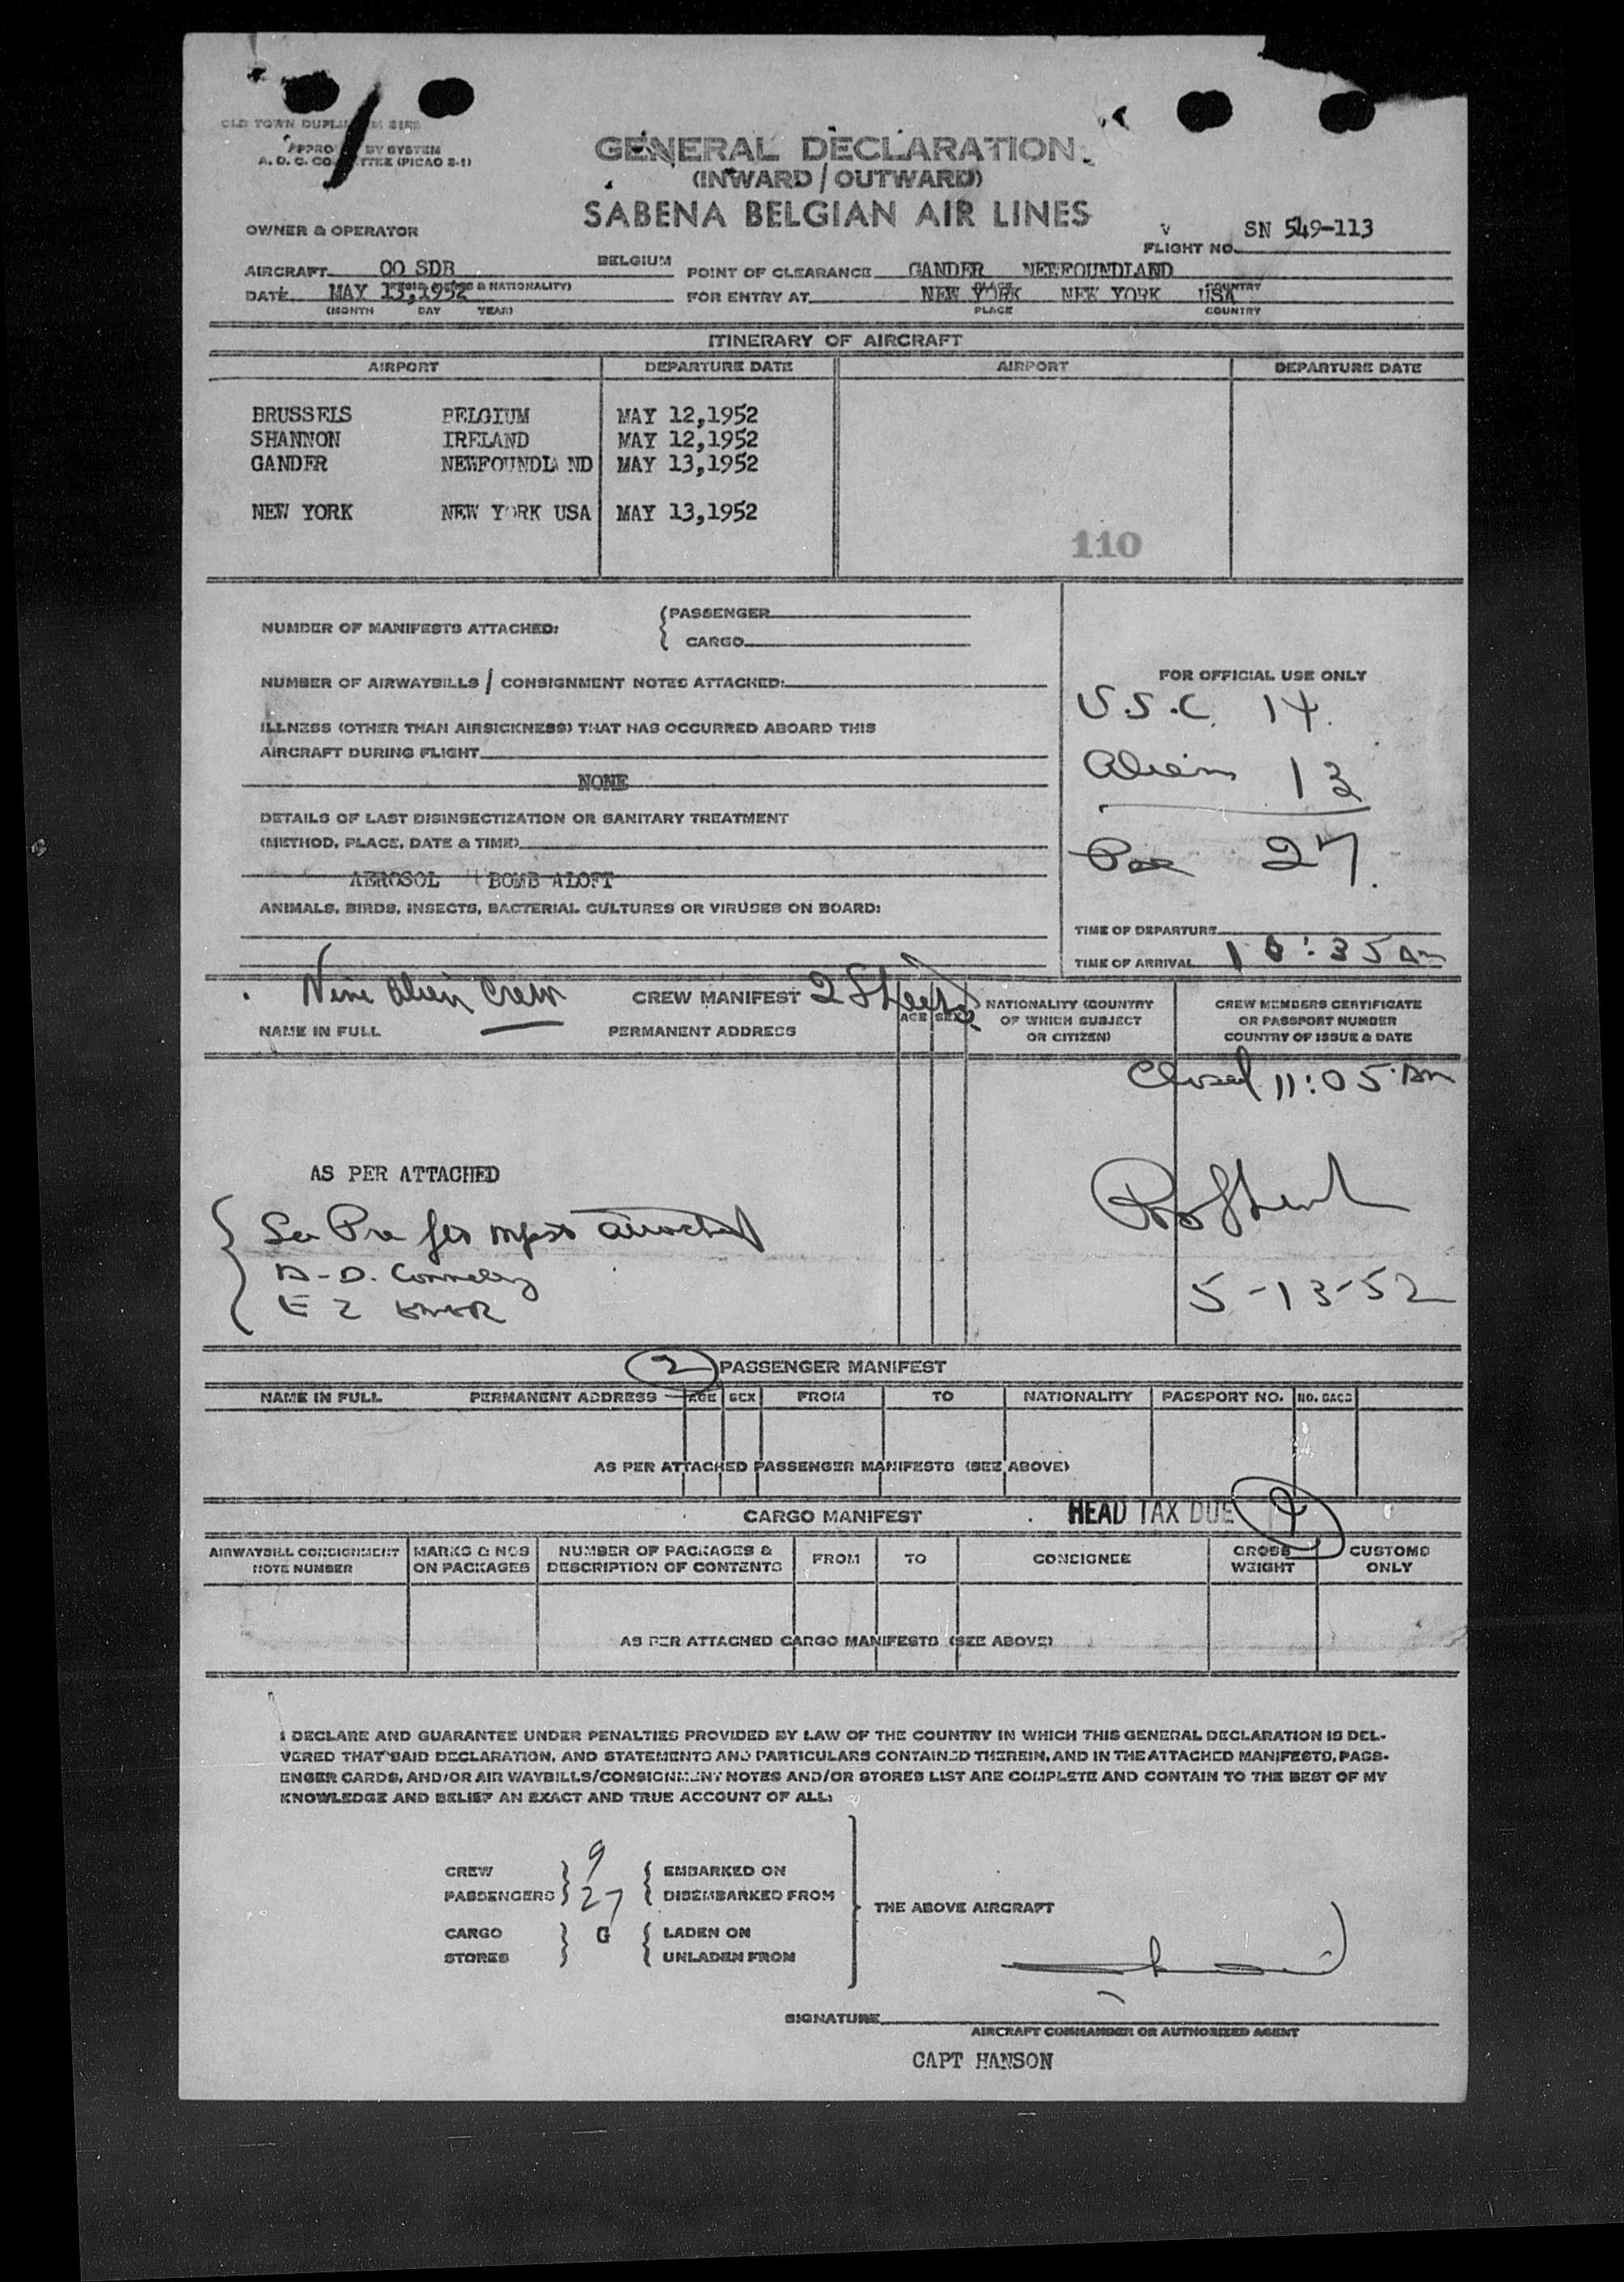 OLD TOWN
APPRO BY SYSTEM
A. D. C. CO TTEE (PICAO 2-1)
GENERAL DECLARATION
(INWARD / OUTWARD)
SABENA BELGIAN AIR LINES
OWNER & OPERATOR
FLIGHT NO. SN 549-113
AIRCRAFT OO SDB BELGIUM POINT OF CLEARANCE GANDER NEWFOUNDLAND
& NATIONALITY) PLACE COUNTRY
DATE MAY 13,1952 FOR ENTRY AT NEW YORK NEW YORK USA
(MONTH DAY YEAR) PLACE COUNTRY
ITINERARY OF AIRCRAFT
AIRPORT DEPARTURE DATE AIRPORT DEPARTURE DATE
BRUSSELS BELGIUM MAY 12,1952
SHANNON IRELAND MAY 12,1952
GANDER NEWFOUNDLAND MAY 13,1952
NEW YORK NEW YORK USA MAY 13,1952
110
NUMBER OF MANIFESTS ATTACHED: { PASSENGER
CARGO
FOR OFFICIAL USE ONLY
NUMBER OF AIRWAYBILLS / CONSIGNMENT NOTES ATTACHED:
U.S.C. 14
ILLNESS (OTHER THAN AIRSICKNESS) THAT HAS OCCURRED ABOARD THIS
AIRCRAFT DURING FLIGHT
Alien 13
NONE
DETAILS OF LAST DISINSECTIZATION OR SANITARY TREATMENT
(METHOD, PLACE, DATE & TIME)
27
AEROSOL BOMB ALOFT
ANIMALS, BIRDS, INSECTS, BACTERIAL CULTURES OR VIRUSES ON BOARD:
TIME OF DEPARTURE
TIME OF ARRIVAL 10:35 Am
Nine Alien Crew CREW MANIFEST 2 Sheets
NAME IN FULL PERMANENT ADDRESS AGE SEX NATIONALITY (COUNTRY OF WHICH SUBJECT OR CITIZEN) CREW MEMBERS CERTIFICATE OR PASSPORT NUMBER COUNTRY OF ISSUE & DATE
Closed 11:05 Am
AS PER ATTACHED
attached
D. Connelly
5-13-52
2 PASSENGER MANIFEST
NAME IN FULL PERMANENT ADDRESS AGE SEX FROM TO NATIONALITY PASSPORT NO. NO. BAGS
AS PER ATTACHED PASSENGER MANIFESTS (SEE ABOVE)
CARGO MANIFEST HEAD TAX DUE
AIRWAYBILL CONSIGNMENT NOTE NUMBER MARKS & NOS ON PACKAGES NUMBER OF PACKAGES & DESCRIPTION OF CONTENTS FROM TO CONSIGNEE GROSS WEIGHT CUSTOMS ONLY
AS PER ATTACHED CARGO MANIFESTS (SEE ABOVE)
I DECLARE AND GUARANTEE UNDER PENALTIES PROVIDED BY LAW OF THE COUNTRY IN WHICH THIS GENERAL DECLARATION IS DEL-
VERED THAT SAID DECLARATION, AND STATEMENTS AND PARTICULARS CONTAINED THEREIN, AND IN THE ATTACHED MANIFESTS, PASS-
ENGER CARDS, AND/OR AIR WAYBILLS/CONSIGNMENT NOTES AND/OR STORES LIST ARE COMPLETE AND CONTAIN TO THE BEST OF MY
KNOWLEDGE AND BELIEF AN EXACT AND TRUE ACCOUNT OF ALL:
CREW } 9 { EMBARKED ON
PASSENGERS } 27 { DISEMBARKED FROM
THE ABOVE AIRCRAFT
CARGO } G { LADEN ON
STORES } { UNLADEN FROM
SIGNATURE
AIRCRAFT COMMANDER OR AUTHORIZED AGENT
CAPT HANSON